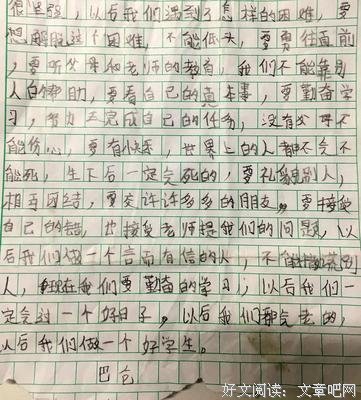 很坚强，以后我们遇到了怎样的困难，要
想解脱这个困难，不能低头，要勇往直前
，要听父母和老师的教育，我们不能靠别
人的帮助，要看自己的真本事，要勤奋学
习，努力去完成自己的任务，没有父母不
能伤心，要有快乐，世界上的人都不会不
能死，生下后一定会死的，要礼貌别人，
相互团结，要交许许多多的朋友，要接受
自己的错，也接受老师提我们的问题，以
后我们做一个言而有信的人，不能别
人，现在我们要勤奋的学习；以后我们一
定会过一个好日子，以后我们都会老的，
以后我们做一个好学生。
巴
好文阅读：文章吧网